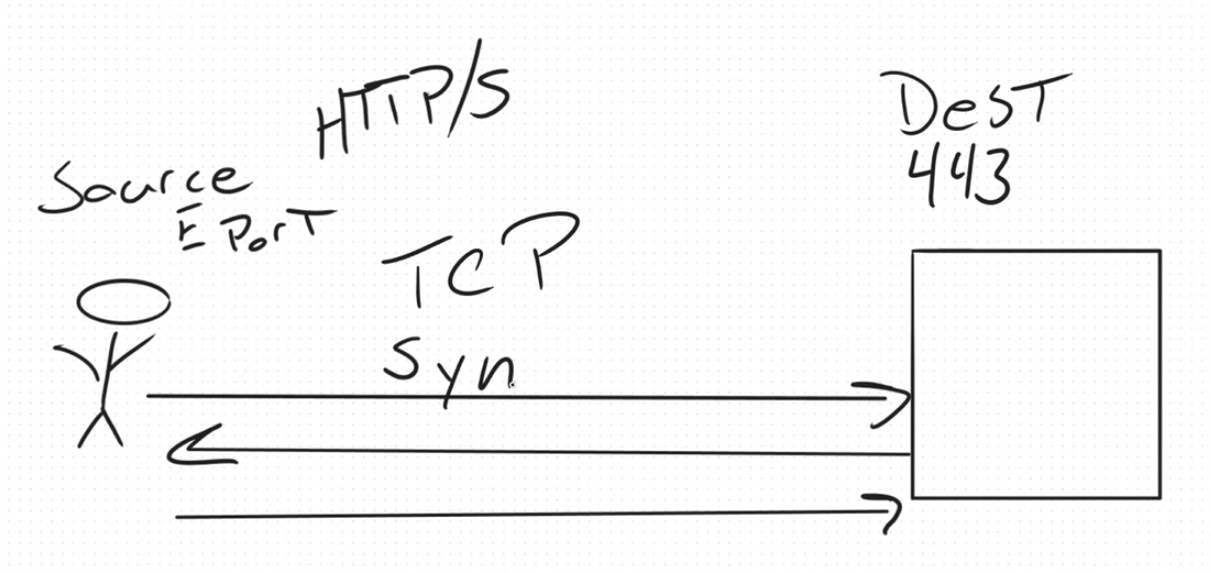 HTTP/S
Source
E PorT
TCP
Syn
DeST
443